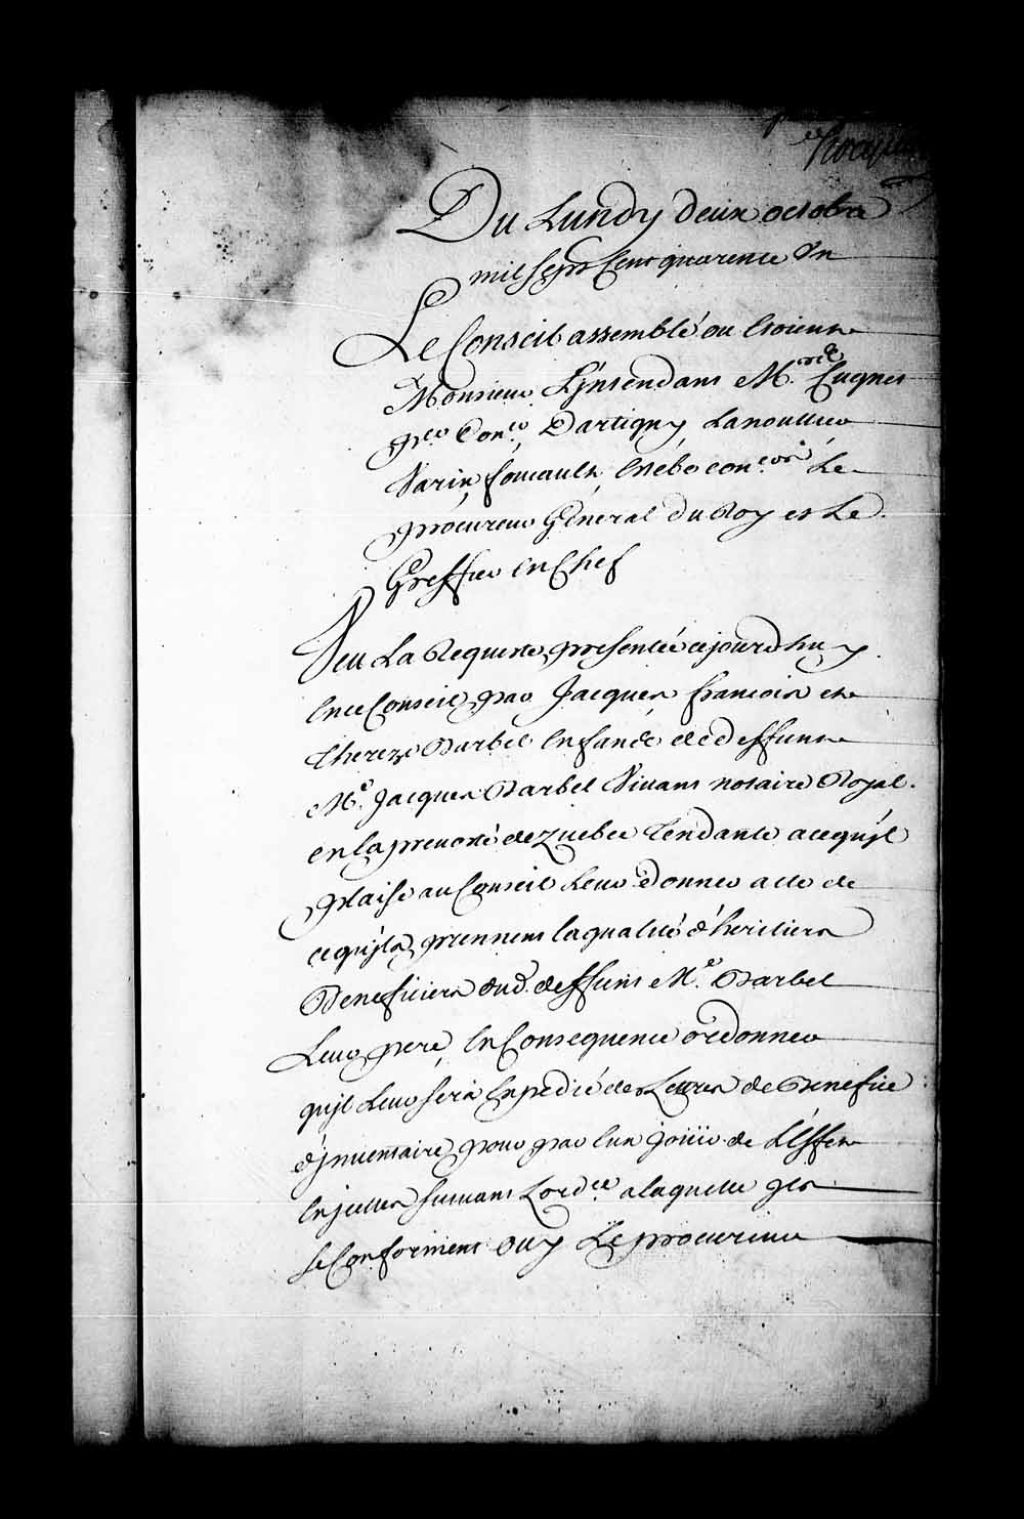 Du Lundy deux octobre
mil sept Cent quarente Un
Le Conseil assemblé ou Etoient
Monsieur L'jntendant Mrs Cugnet
per Coner, Dartigny Lanoullier
Varin, foucault, Estebe coners Le
procureur Général du Roy et Le
Greffier En Chef
Veu La Requeste presentée cejourdhuy
En ce Conseil par Jacques, francois et
Thereze Barbel Enfants de deffunt
Me. Jacques Barbel Vivant notaire Royal
en la prevosté de Quebec Tendante a ce qu'jl
plaise au Conseil Leur donner acte de
ce qu'jls prennent la qualité d'heritiers
Beneficiers dud. deffunt Me. Barbel
Leur pere, En Consequence ordonner
qu'jl Leur sera Expedié des Lettres de Benefice
d'jnventaire, pour par Eux joüir de L'Effet
En jcelles suivant Lordce a laquelle jls
se Conforment ouy Le procureur